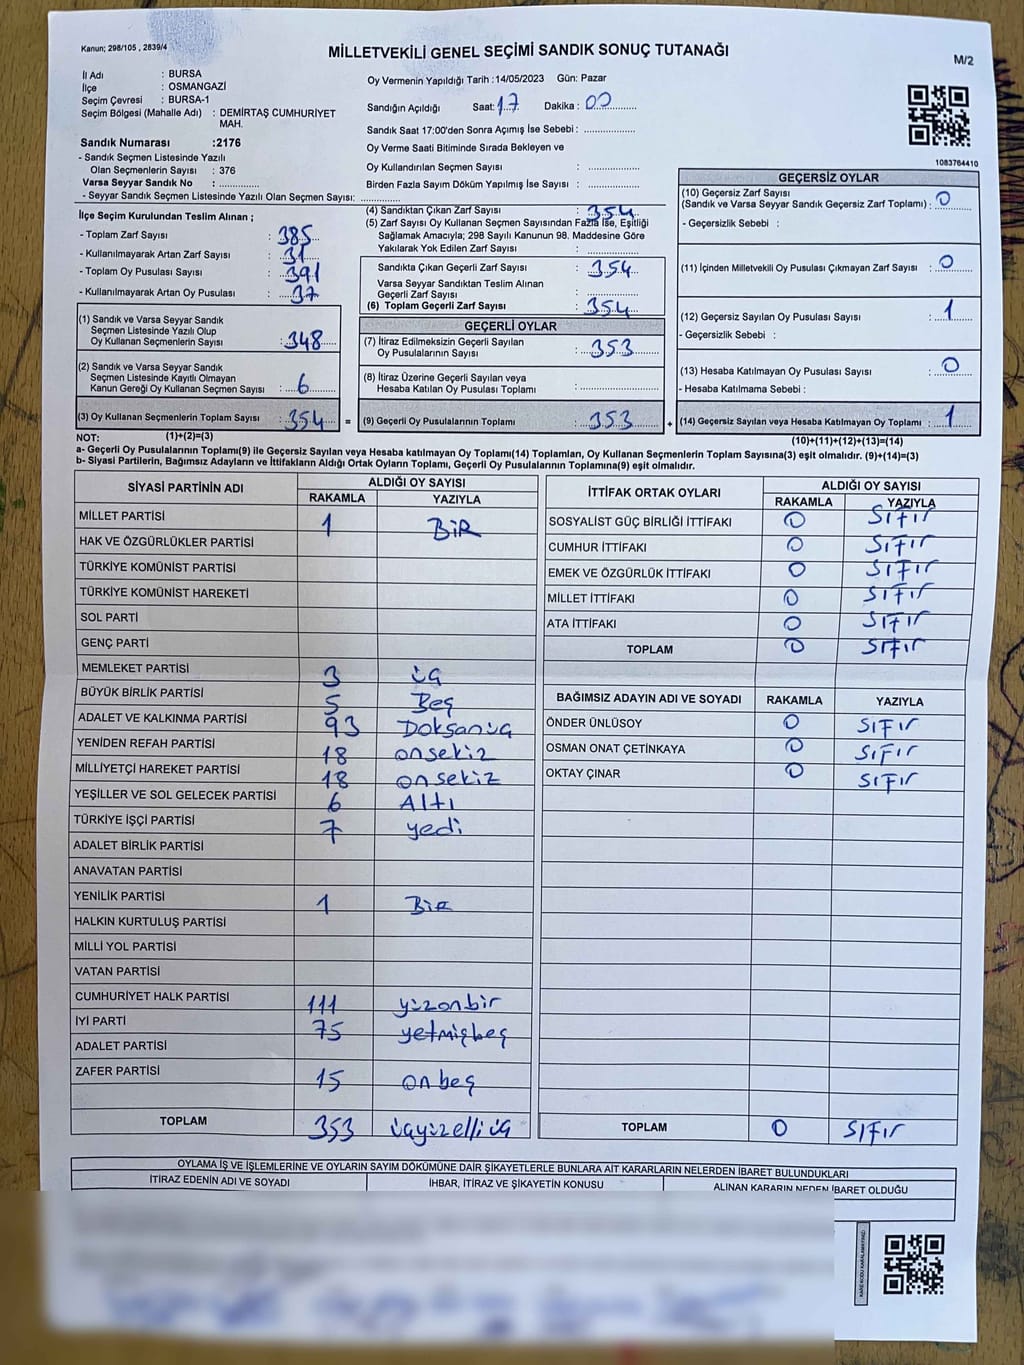 Kanun; 298/105 , 2839/4
MİLLETVEKİLİ GENEL SEÇİMİ SANDIK SONUÇ TUTANAĞI
M/2
İl Adı : BURSA
İlçe : OSMANGAZİ
Seçim Çevresi : BURSA-1
Seçim Bölgesi (Mahalle Adı) : DEMİRTAŞ CUMHURİYET
MAH.
Sandık Numarası :2176
- Sandık Seçmen Listesinde Yazılı
Olan Seçmenlerin Sayısı : 376
Varsa Seyyar Sandık No : ...............
- Seyyar Sandık Seçmen Listesinde Yazılı Olan Seçmen Sayısı: ...............
Oy Vermenin Yapıldığı Tarih :14/05/2023 Gün: Pazar
Sandığın Açıldığı Saat: 17 Dakika : 00
Sandık Saat 17:00'den Sonra Açımış İse Sebebi : ...............
Oy Verme Saati Bitiminde Sırada Bekleyen ve
Oy Kullandırılan Seçmen Sayısı : ...............
Birden Fazla Sayım Döküm Yapılmış İse Sayısı : ...............
1083764410
İlçe Seçim Kurulundan Teslim Alınan ;
- Toplam Zarf Sayısı : 385
- Kullanılmayarak Artan Zarf Sayısı : 31
- Toplam Oy Pusulası Sayısı : 391
- Kullanılmayarak Artan Oy Pusulası : 37
(1) Sandık ve Varsa Seyyar Sandık
Seçmen Listesinde Yazılı Olup
Oy Kullanan Seçmenlerin Sayısı : 348
(2) Sandık ve Varsa Seyyar Sandık
Seçmen Listesinde Kayıtlı Olmayan
Kanun Gereği Oy Kullanan Seçmen Sayısı : 6
(3) Oy Kullanan Seçmenlerin Toplam Sayısı : 354 =
(1)+(2)=(3)
(4) Sandıktan Çıkan Zarf Sayısı : 354
(5) Zarf Sayısı Oy Kullanan Seçmen Sayısından Fazla İse, Eşitliği
Sağlamak Amacıyla; 298 Sayılı Kanunun 98. Maddesine Göre
Yakılarak Yok Edilen Zarf Sayısı : ...............
Sandıkta Çıkan Geçerli Zarf Sayısı : 354
Varsa Seyyar Sandıktan Teslim Alınan
Geçerli Zarf Sayısı : ...............
(6) Toplam Geçerli Zarf Sayısı : 354
GEÇERLİ OYLAR
(7) İtiraz Edilmeksizin Geçerli Sayılan
Oy Pusulalarının Sayısı : 353
(8) İtiraz Üzerine Geçerli Sayılan veya
Hesaba Katılan Oy Pusulası Toplamı : ...............
(9) Geçerli Oy Pusulalarının Toplamı : 353 +
GEÇERSİZ OYLAR
(10) Geçersiz Zarf Sayısı
(Sandık ve Varsa Seyyar Sandık Geçersiz Zarf Toplamı) : 0
- Geçersizlik Sebebi :
(11) İçinden Milletvekili Oy Pusulası Çıkmayan Zarf Sayısı : 0
(12) Geçersiz Sayılan Oy Pusulası Sayısı : 1
- Geçersizlik Sebebi :
(13) Hesaba Katılmayan Oy Pusulası Sayısı : 0
- Hesaba Katılmama Sebebi :
(14) Geçersiz Sayılan veya Hesaba Katılmayan Oy Toplamı : 1
(10)+(11)+(12)+(13)=(14)
NOT:
a- Geçerli Oy Pusulalarının Toplamı(9) ile Geçersiz Sayılan veya Hesaba katılmayan Oy Toplamı(14) Toplamları, Oy Kullanan Seçmenlerin Toplam Sayısına(3) eşit olmalıdır. (9)+(14)=(3)
b- Siyasi Partilerin, Bağımsız Adayların ve İttifakların Aldığı Ortak Oyların Toplamı, Geçerli Oy Pusulalarının Toplamına(9) eşit olmalıdır.
SİYASİ PARTİNİN ADI ALDIĞI OY SAYISI
RAKAMLA YAZIYLA
MİLLET PARTİSİ 1 BİR
HAK VE ÖZGÜRLÜKLER PARTİSİ
TÜRKİYE KOMÜNİST PARTİSİ
TÜRKİYE KOMÜNİST HAREKETİ
SOL PARTİ
GENÇ PARTİ
MEMLEKET PARTİSİ 3 üç
BÜYÜK BİRLİK PARTİSİ 5 Beş
ADALET VE KALKINMA PARTİSİ 93 Doksanüç
YENİDEN REFAH PARTİSİ 18 onsekiz
MİLLİYETÇİ HAREKET PARTİSİ 18 onsekiz
YEŞİLLER VE SOL GELECEK PARTİSİ 6 Altı
TÜRKİYE İŞÇİ PARTİSİ 7 yedi
ADALET BİRLİK PARTİSİ
ANAVATAN PARTİSİ
YENİLİK PARTİSİ 1 BİR
HALKIN KURTULUŞ PARTİSİ
MİLLİ YOL PARTİSİ
VATAN PARTİSİ
CUMHURİYET HALK PARTİSİ 111 yüzonbir
İYİ PARTİ 75 yetmişbeş
ADALET PARTİSİ
ZAFER PARTİSİ 15 onbeş
TOPLAM 353 üçyüzelliüç
İTTİFAK ORTAK OYLARI ALDIĞI OY SAYISI
RAKAMLA YAZIYLA
SOSYALİST GÜÇ BİRLİĞİ İTTİFAKI 0 SIFIR
CUMHUR İTTİFAKI 0 SIFIR
EMEK VE ÖZGÜRLÜK İTTİFAKI 0 SIFIR
MİLLET İTTİFAKI 0 SIFIR
ATA İTTİFAKI 0 SIFIR
TOPLAM 0 SIFIR
BAĞIMSIZ ADAYIN ADI VE SOYADI RAKAMLA YAZIYLA
ÖNDER ÜNLÜSOY 0 SIFIR
OSMAN ONAT ÇETİNKAYA 0 SIFIR
OKTAY ÇINAR 0 SIFIR
TOPLAM 0 SIFIR
OYLAMA İŞ VE İŞLEMLERİNE VE OYLARIN SAYIM DÖKÜMÜNE DAİR ŞİKAYETLERLE BUNLARA AİT KARARLARIN NELERDEN İBARET BULUNDUKLARI
İTİRAZ EDENİN ADI VE SOYADI İHBAR, İTİRAZ VE ŞİKAYETİN KONUSU ALINAN KARARIN NEDEN İBARET OLDUĞU